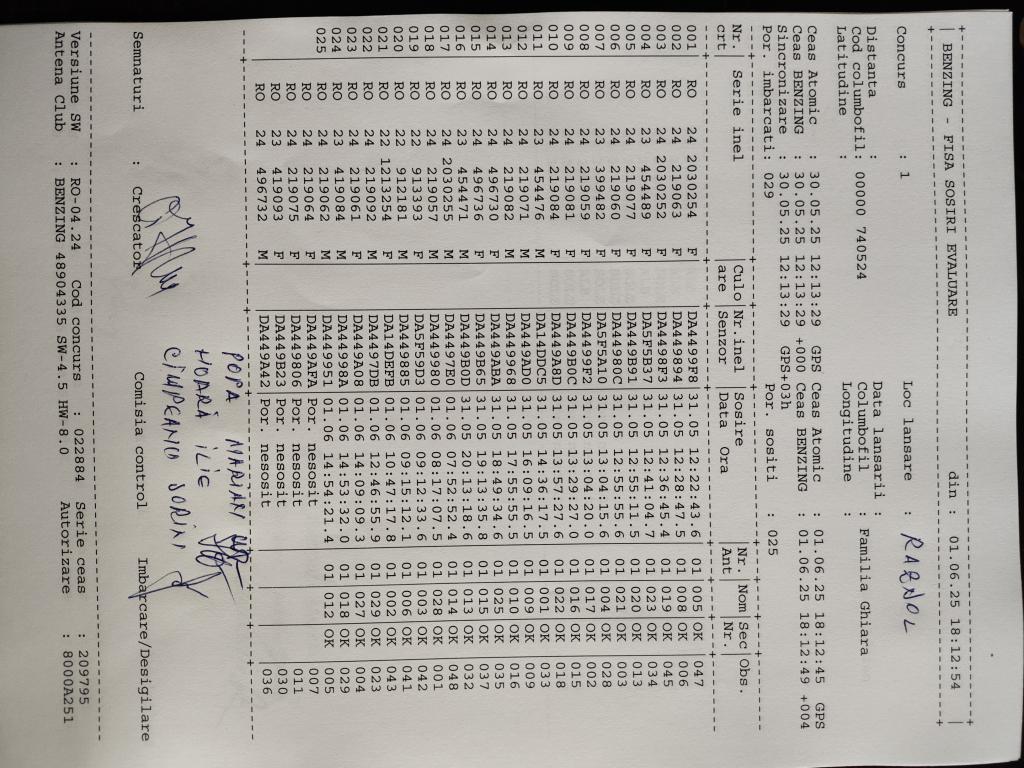 | BENZING - FISA SOSIRI EVALUARE din : 01.06.25 18:12:54 |
Concurs : 1 Loc lansare : RAZNOL
Distanta : Data lansarii :
Cod columbofil: 00000 740524 Columbofil : Familia Ghiara
Latitudine : Longitudine :
Ceas Atomic : 30.05.25 12:13:29 GPS Ceas Atomic : 01.06.25 18:12:45 GPS
Ceas BENZING : 30.05.25 12:13:29 +000 Ceas BENZING : 01.06.25 18:12:49 +004
Sincronizare : 30.05.25 12:13:29 GPS+03h
Por. imbarcati: 029 Por. sositi : 025
Nr. | Serie inel | Culo | Nr.inel | Sosire | Nr. | Nom | Sec | Obs.
crt | are | Senzor | Data Ora | Ant | Nr.
001 RO 24 2030254 F DA4499F8 31.05 12:22:43.6 01 005 OK 047
002 RO 24 219063 F DA449894 31.05 12:28:47.5 01 008 OK 006
003 RO 24 2030252 F DA4498F3 31.05 12:36:45.4 01 019 OK 045
004 RO 23 454489 F DA5F5B37 31.05 12:41:04.7 01 023 OK 034
005 RO 24 219077 F DA449B91 31.05 12:55:11.5 01 020 OK 013
006 RO 24 219060 F DA44980C 31.05 12:55:55.6 01 021 OK 003
007 RO 23 399482 F DA5F5A10 31.05 13:04:15.6 01 004 OK 028
008 RO 24 219059 F DA4499F2 31.05 13:04:20.0 01 017 OK 002
009 RO 24 219081 F DA449B0C 31.05 13:29:27.0 01 016 OK 015
010 RO 24 219084 F DA449A8D 31.05 13:57:27.6 01 022 OK 018
011 RO 23 454476 M DA14DDC5 31.05 14:36:17.5 01 001 OK 033
012 RO 24 219071 M DA449AD0 31.05 16:09:16.5 01 009 OK 009
013 RO 24 219082 M DA449968 31.05 17:55:55.5 01 010 OK 016
014 RO 24 496730 F DA449ABA 31.05 18:49:34.6 01 025 OK 035
015 RO 24 496736 F DA449B65 31.05 19:13:35.8 01 015 OK 037
016 RO 23 454471 M DA449B0D 31.05 20:13:18.6 01 013 OK 032
017 RO 24 2030255 M DA4497B0 01.06 07:52:52.4 01 014 OK 048
018 RO 24 219057 M DA449980 01.06 08:17:07.5 01 028 OK 001
019 RO 22 913393 F DA5F59D3 01.06 09:12:33.6 01 003 OK 042
020 RO 22 912181 M DA449885 01.06 09:15:12.1 01 006 OK 041
021 RO 22 1213254 F DA14DEFB 01.06 10:47:17.8 01 002 OK 043
022 RO 24 219092 M DA4497DB 01.06 12:46:55.9 01 029 OK 023
023 RO 24 219061 F DA449A08 01.06 14:09:09.3 01 027 OK 004
024 RO 23 419084 M DA44998A 01.06 14:53:32.0 01 018 OK 029
025 RO 24 219062 M DA449951 01.06 14:54:21.4 01 012 OK 005
RO 24 219064 F DA449AFA Por. nesosit 007
RO 24 219075 F DA449806 Por. nesosit 011
RO 23 419093 F DA449B23 Por. nesosit 030
RO 24 496732 M DA449A42 Por. nesosit 036
POPA MARIAN
HOARĂ ILIE
CÎMPEANU SORIN
Semnaturi : Crescator Comisia control Imbarcare/Desigilare
Versiune SW : RO-04.24 Cod concurs : 022884 Serie ceas : 209795
Antena Club : BENZING 48904335 SW-4.5 HW-8.0 Autorizare : 8000A251